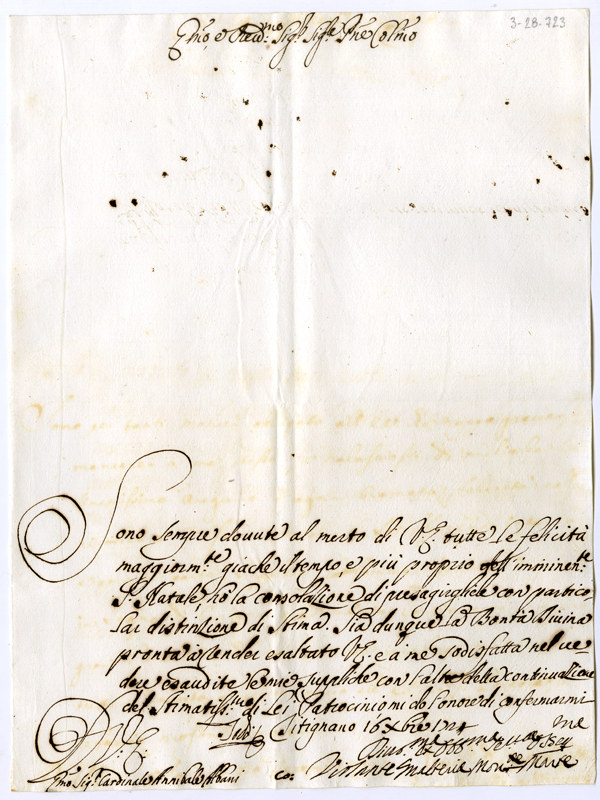 3-28-723
Em̃o, e Reud.mo Sig.r Sig.re Pñe Colm̃o
Sono sempre dovute al merto di V.E. tutte le felicità
maggiorm.te giache il tempo, e più proprio dell'imminen.te
S. Natale, hò la consolazione di presagirgliele con partico-
lar distinzione di stima. Sia dunque la Bontà Divina
pronta à render esaltato V.E. e à me sodisfatta nel ve-
dere esaudite le mie suppliche con l'altre della continuazione
del stimatiss.mo di Lei Patrocinio mi do l'onore di confermarmi
Sitignano 16 Xbre 1724
D. V. E.
Em̃o Sig.r Cardinale Annibale Albani